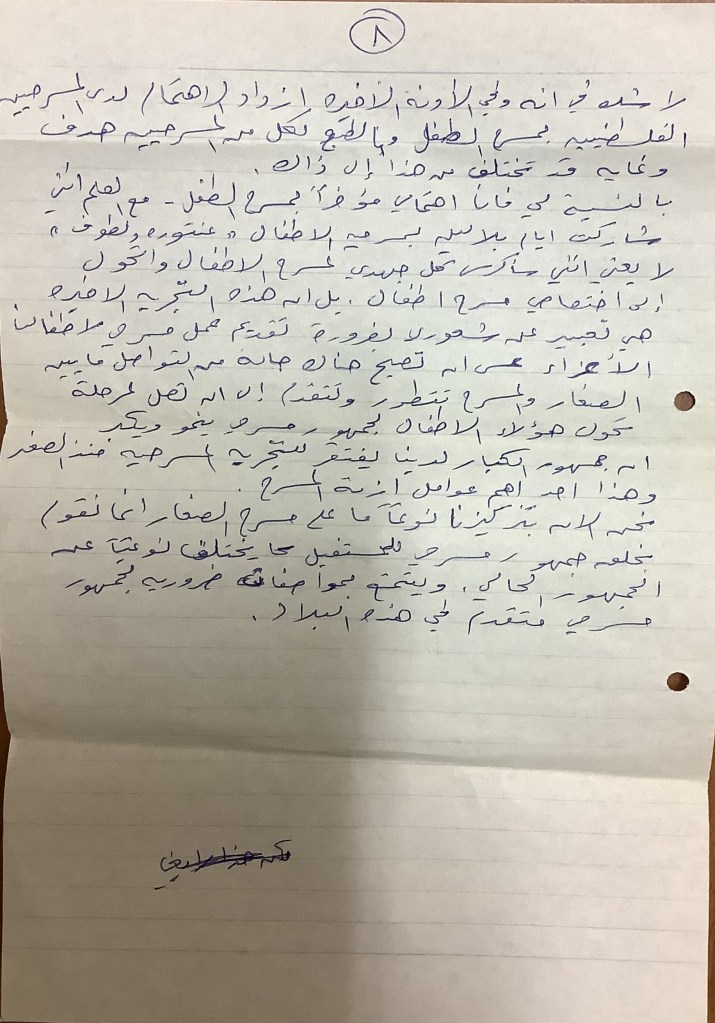 ٨
لا شك في انه وفي الآونة الأخيره ازداد الاهتمام لدى المسرحيين
الفلسطينيين بمسرح الطفل وبالطبع لكل من المسرحيين هدف
وغايه قد تختلف من هذا إلى ذاك.
بالنسبة لي فان اهتمامي مؤخراً بمسرح الطفل - مع العلم انني
شاركت ايام بلالين بمسرحية الاطفال "عنتوره ولطوف"
لا يعني انني سأكرس كل جهدي لمسرح الاطفال واتحول
إلى اختصاصي مسرح اطفال. بل ان هذه التجربه الاخيره
هي تعبير عن شعوري لضرورة تقديم عمل مسرحي لاطفالنا
الأعزاء عسى ان تصبح هناك حاله من التواصل ما بين
الصغار والمسرح تتطور وتتقدم إلى ان تصل لمرحلة
تحول هؤلاء الاطفال لجمهور مسرحي ينمو ويكبر
ان جمهور الكبار لدينا يفتقر للتجربه المسرحيه منذ الصغر
وهذا احد اهم عوامل ازمة المسرح.
نحن الان بتركيزنا نوعاً ما على مسرح الصغار انما نقوم
بخلق جمهور مسرحي للمستقبل مما يختلف نوعيّاً عن
الجمهور الحالي. ويتمتع بمواصفات ضروريه لجمهور
مسرحي متقدم في هذه البلاد.